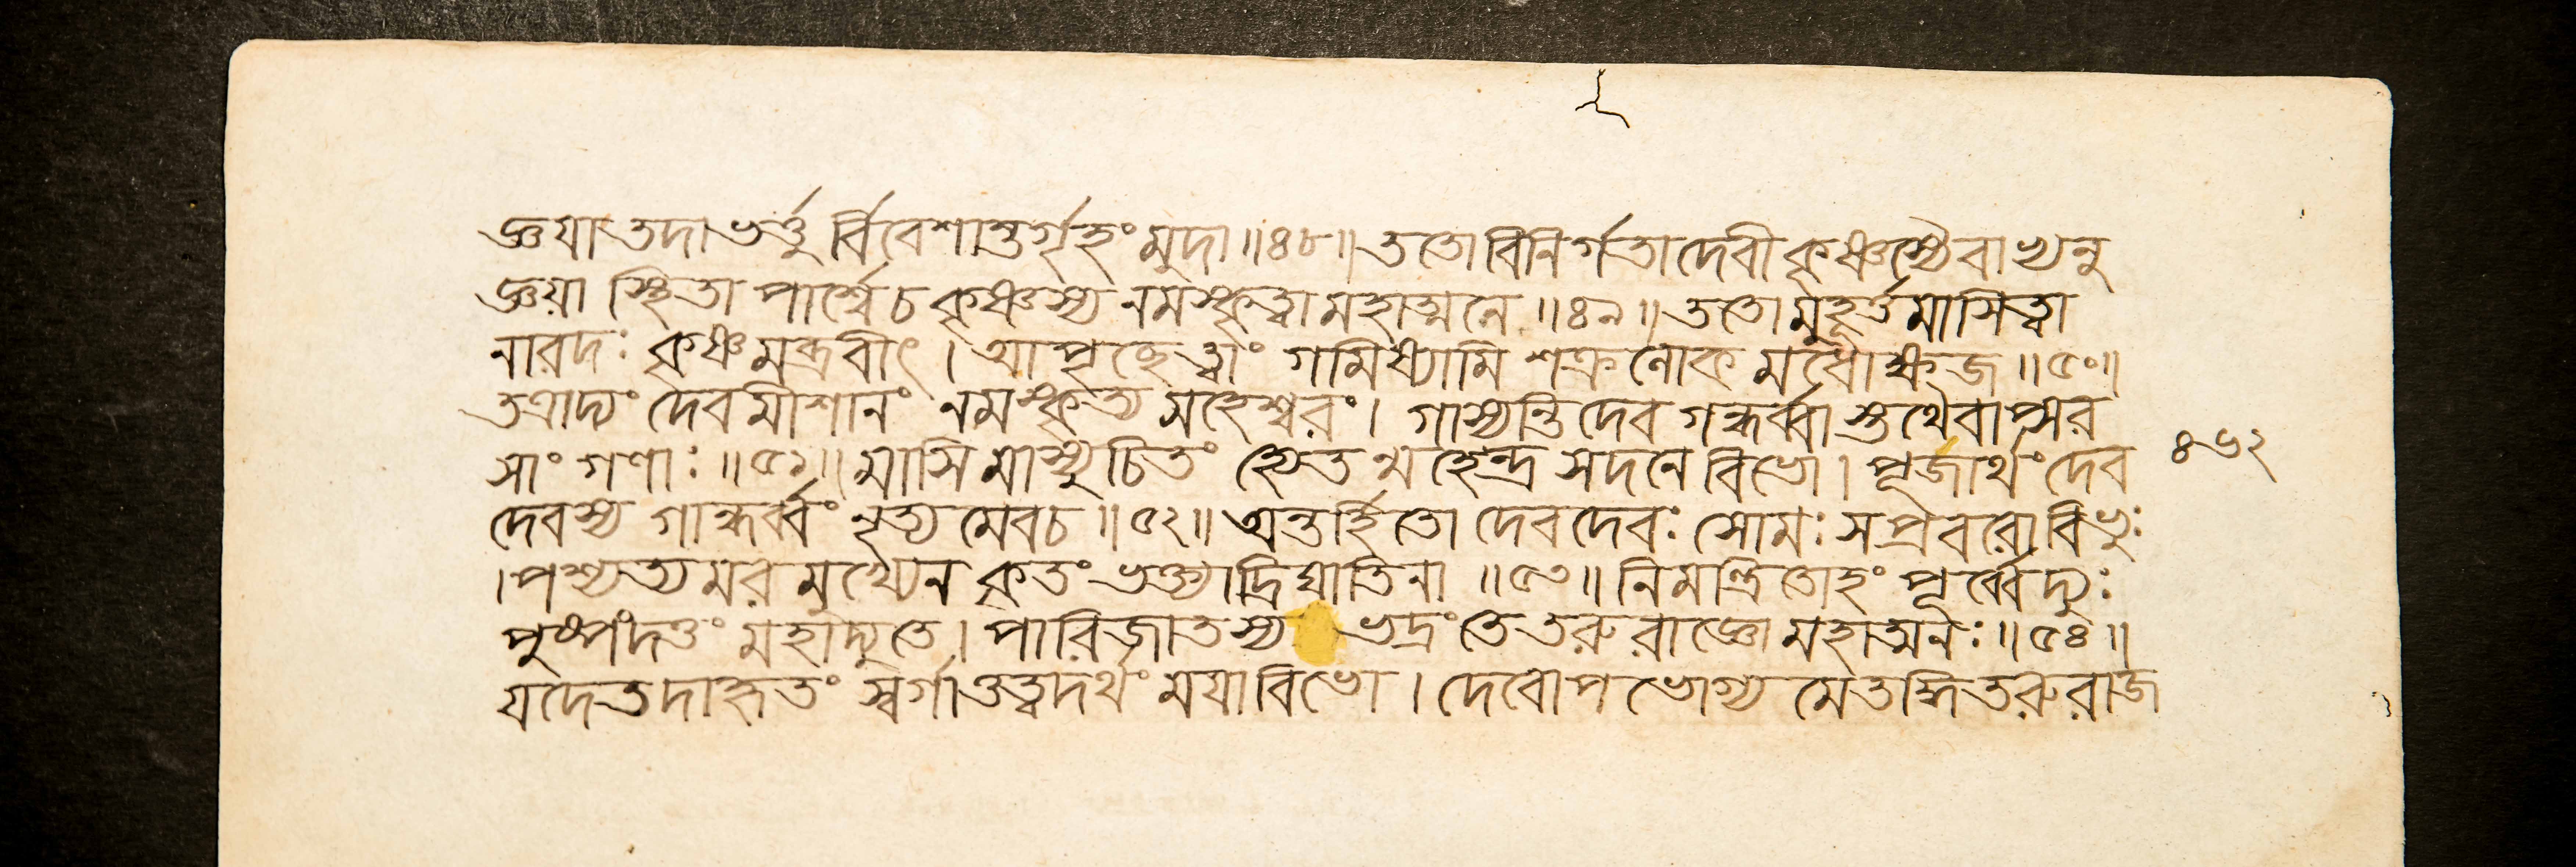 জ্ঞয়া তদা ভর্ত্তু র্বিবেশান্তর্গৃহং মুদা ॥৪৮॥ ততো বিনির্গতা দেবী কৃষ্ণস্যৈবাভ্যনু
জ্ঞয়া স্থিতা পার্শ্বে চ কৃষ্ণস্য নমস্কৃত্বা মহাত্মনে ॥৪৯॥ ততো মুহূর্ত্তমাসিত্বা
নারদঃ কৃষ্ণমব্রবীৎ । আপৃচ্ছে ত্বাং গমিষ্যামি শক্রলোকমধোক্ষজ ॥৫০॥
তত্রাদ্যং দেবমীশানং নমস্কৃত্য মহেশ্বরং । গাস্যন্তি দেবগন্ধর্ব্বাস্তথৈবাপ্সর
সাং গণাঃ ॥৫১॥ মাসি মাস্যুচিতং হ্যেতন্মহেন্দ্রসদনে বিভো । পূজার্থং দেব
৪৬২
দেবস্য গান্ধর্ব্বং নৃত্যমেবচ ॥৫২॥ অন্তর্হিতো দেবদেবঃ সোমঃ সপ্রবরো বিভুঃ
। পশ্যত্যমরমুখ্যেন কৃতং ভক্ত্যাদ্রিঘাতিনা ॥৫৩॥ নিমন্ত্রিতোহং পূর্ব্বেদ্যুঃ
পুষ্পং দত্তং মহাদ্যুতে । পারিজাতস্য ভদ্রং তে তরুরাজ্ঞো মহাত্মনঃ ॥৫৪॥
যদেতদাহৃতং স্বর্গাত্ত্বদর্থং ময়া বিভো । দেবোপভোগ্যমেতদ্ধি তরুরাজ